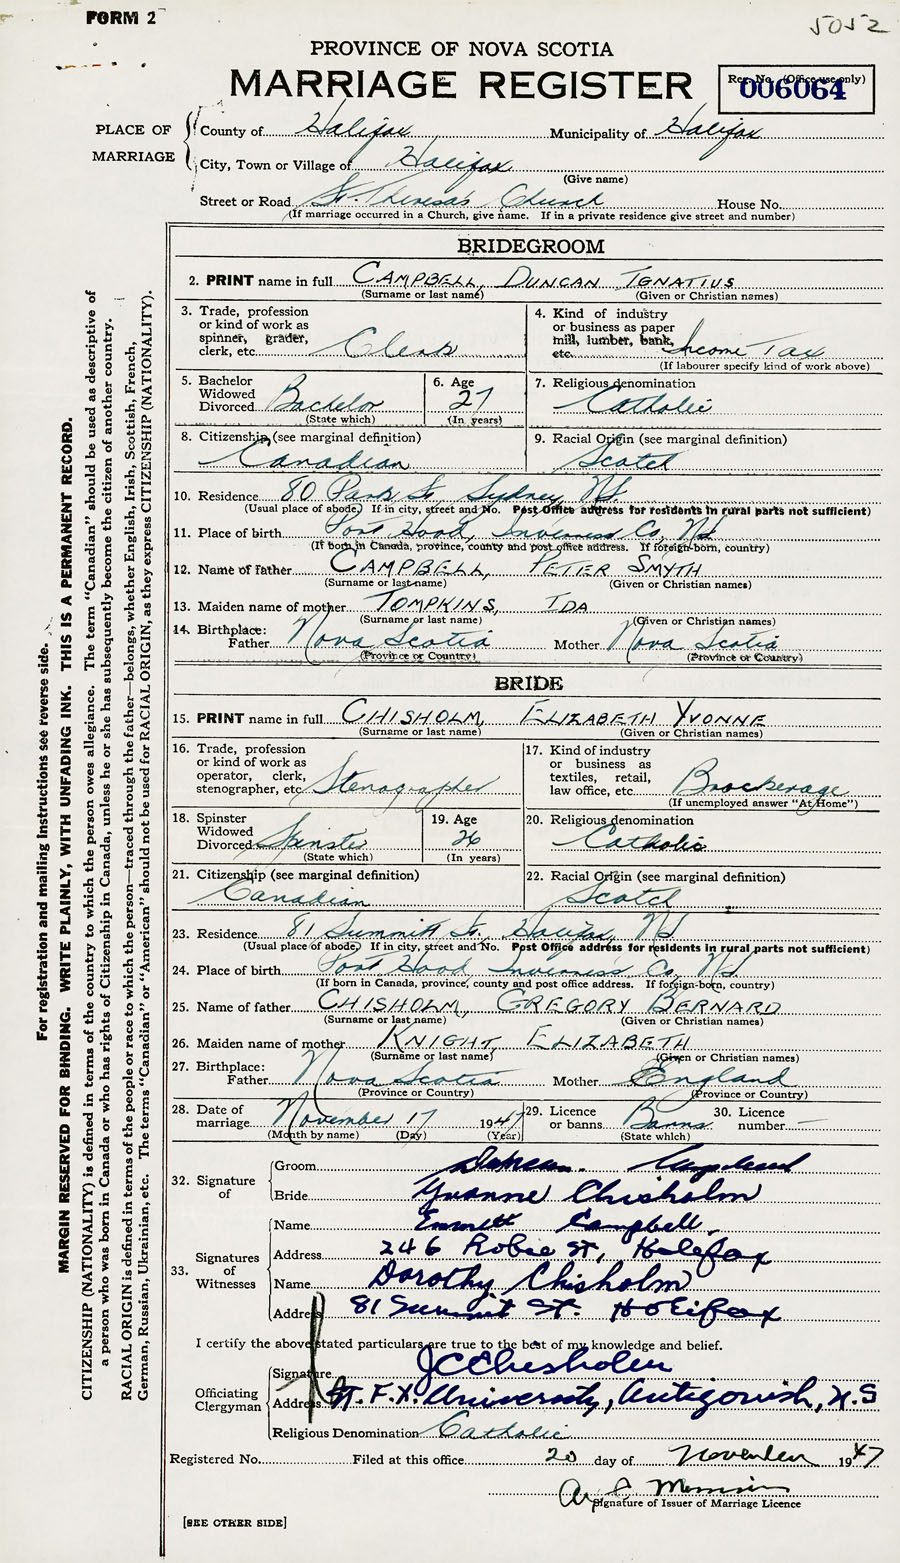 FORM 2
5052
PROVINCE OF NOVA SCOTIA
MARRIAGE REGISTER
Reg. No. (Office use only)
006064
PLACE OF MARRIAGE
County of Halifax Municipality of Halifax
City, Town or Village of Halifax
(Give name)
Street or Road St. Theresa's Church House No.
(If marriage occurred in a Church, give name. If in a private residence give street and number)
BRIDEGROOM
2. PRINT name in full CAMPBELL, DUNCAN IGNATIUS
(Surname or last name) (Given or Christian names)
3. Trade, profession
or kind of work as
spinner, grader,
clerk, etc. Clerk
4. Kind of industry
or business as paper
mill, lumber, bank,
etc. Income Tax
(If labourer specify kind of work above)
5. Bachelor
Widowed
Divorced Bachelor
(State which)
6. Age
27
(In years)
7. Religious denomination
Catholic
8. Citizenship (see marginal definition)
Canadian
9. Racial Origin (see marginal definition)
Scotch
10. Residence 80 Park St., Sydney, N.S.
(Usual place of abode) If in city, street and No. Post Office address for residents in rural parts not sufficient)
11. Place of birth Port Hood, Inverness Co, NS
(If born in Canada, province, county and post office address. If foreign-born, country)
12. Name of father CAMPBELL, PETER SMYTH
(Surname or last name) (Given or Christian names)
13. Maiden name of mother TOMPKINS, IDA
(Surname or last name) (Given or Christian names)
14. Birthplace:
Father Nova Scotia Mother Nova Scotia
(Province or Country) (Province or Country)
BRIDE
15. PRINT name in full CHISHOLM, ELIZABETH YVONNE
(Surname or last name) (Given or Christian names)
16. Trade, profession
or kind of work as
operator, clerk,
stenographer, etc. Stenographer
17. Kind of industry
or business as
textiles, retail,
law office, etc. Brockerage
(If unemployed answer "At Home")
18. Spinster
Widowed
Divorced Spinster
(State which)
19. Age
26
(In years)
20. Religious denomination
Catholic
21. Citizenship (see marginal definition)
Canadian
22. Racial Origin (see marginal definition)
Scotch
23. Residence 81 Summit St., Halifax, NS
(Usual place of abode) If in city, street and No. Post Office address for residents in rural parts not sufficient)
24. Place of birth Port Hood, Inverness Co, NS
(If born in Canada, province, county and post office address. If foreign-born, country)
25. Name of father CHISHOLM, GREGORY BERNARD
(Surname or last name) (Given or Christian names)
26. Maiden name of mother KNIGHT, ELIZABETH
(Surname or last name) (Given or Christian names)
27. Birthplace:
Father Nova Scotia Mother England
(Province or Country) (Province or Country)
28. Date of
marriage November 17 1947
(Month by name) (Day) (Year)
29. Licence
or banns Banns
(State which)
30. Licence
number —
32. Signature of
Groom Duncan Campbell
Bride Yvonne Chisholm
33. Signatures of Witnesses
Name Emmett Campbell
Address 246 Robie St, Halifax
Name Dorothy Chisholm
Address 81 Summit St. Halifax
I certify the above stated particulars are true to the best of my knowledge and belief.
Officiating Clergyman
Signature J C Chisholm
Address St. F. X. University, Antigonish, N.S
Religious Denomination Catholic
Registered No. Filed at this office 20 day of November 1947
Signature of Issuer of Marriage Licence
[SEE OTHER SIDE]
For registration and mailing instructions see reverse side.
MARGIN RESERVED FOR BINDING. WRITE PLAINLY, WITH UNFADING INK. THIS IS A PERMANENT RECORD.
CITIZENSHIP (NATIONALITY) is defined in terms of the country to which the person owes allegiance. The term "Canadian" should be used as descriptive of
a person who was born in Canada or who has rights of Citizenship in Canada, unless he or she has subsequently become the citizen of another country.
RACIAL ORIGIN is defined in terms of the people or race to which the person—traced through the father—belongs, whether English, Irish, Scottish, French,
German, Russian, Ukrainian, etc. The terms "Canadian" or "American" should not be used for RACIAL ORIGIN, as they express CITIZENSHIP (NATIONALITY).